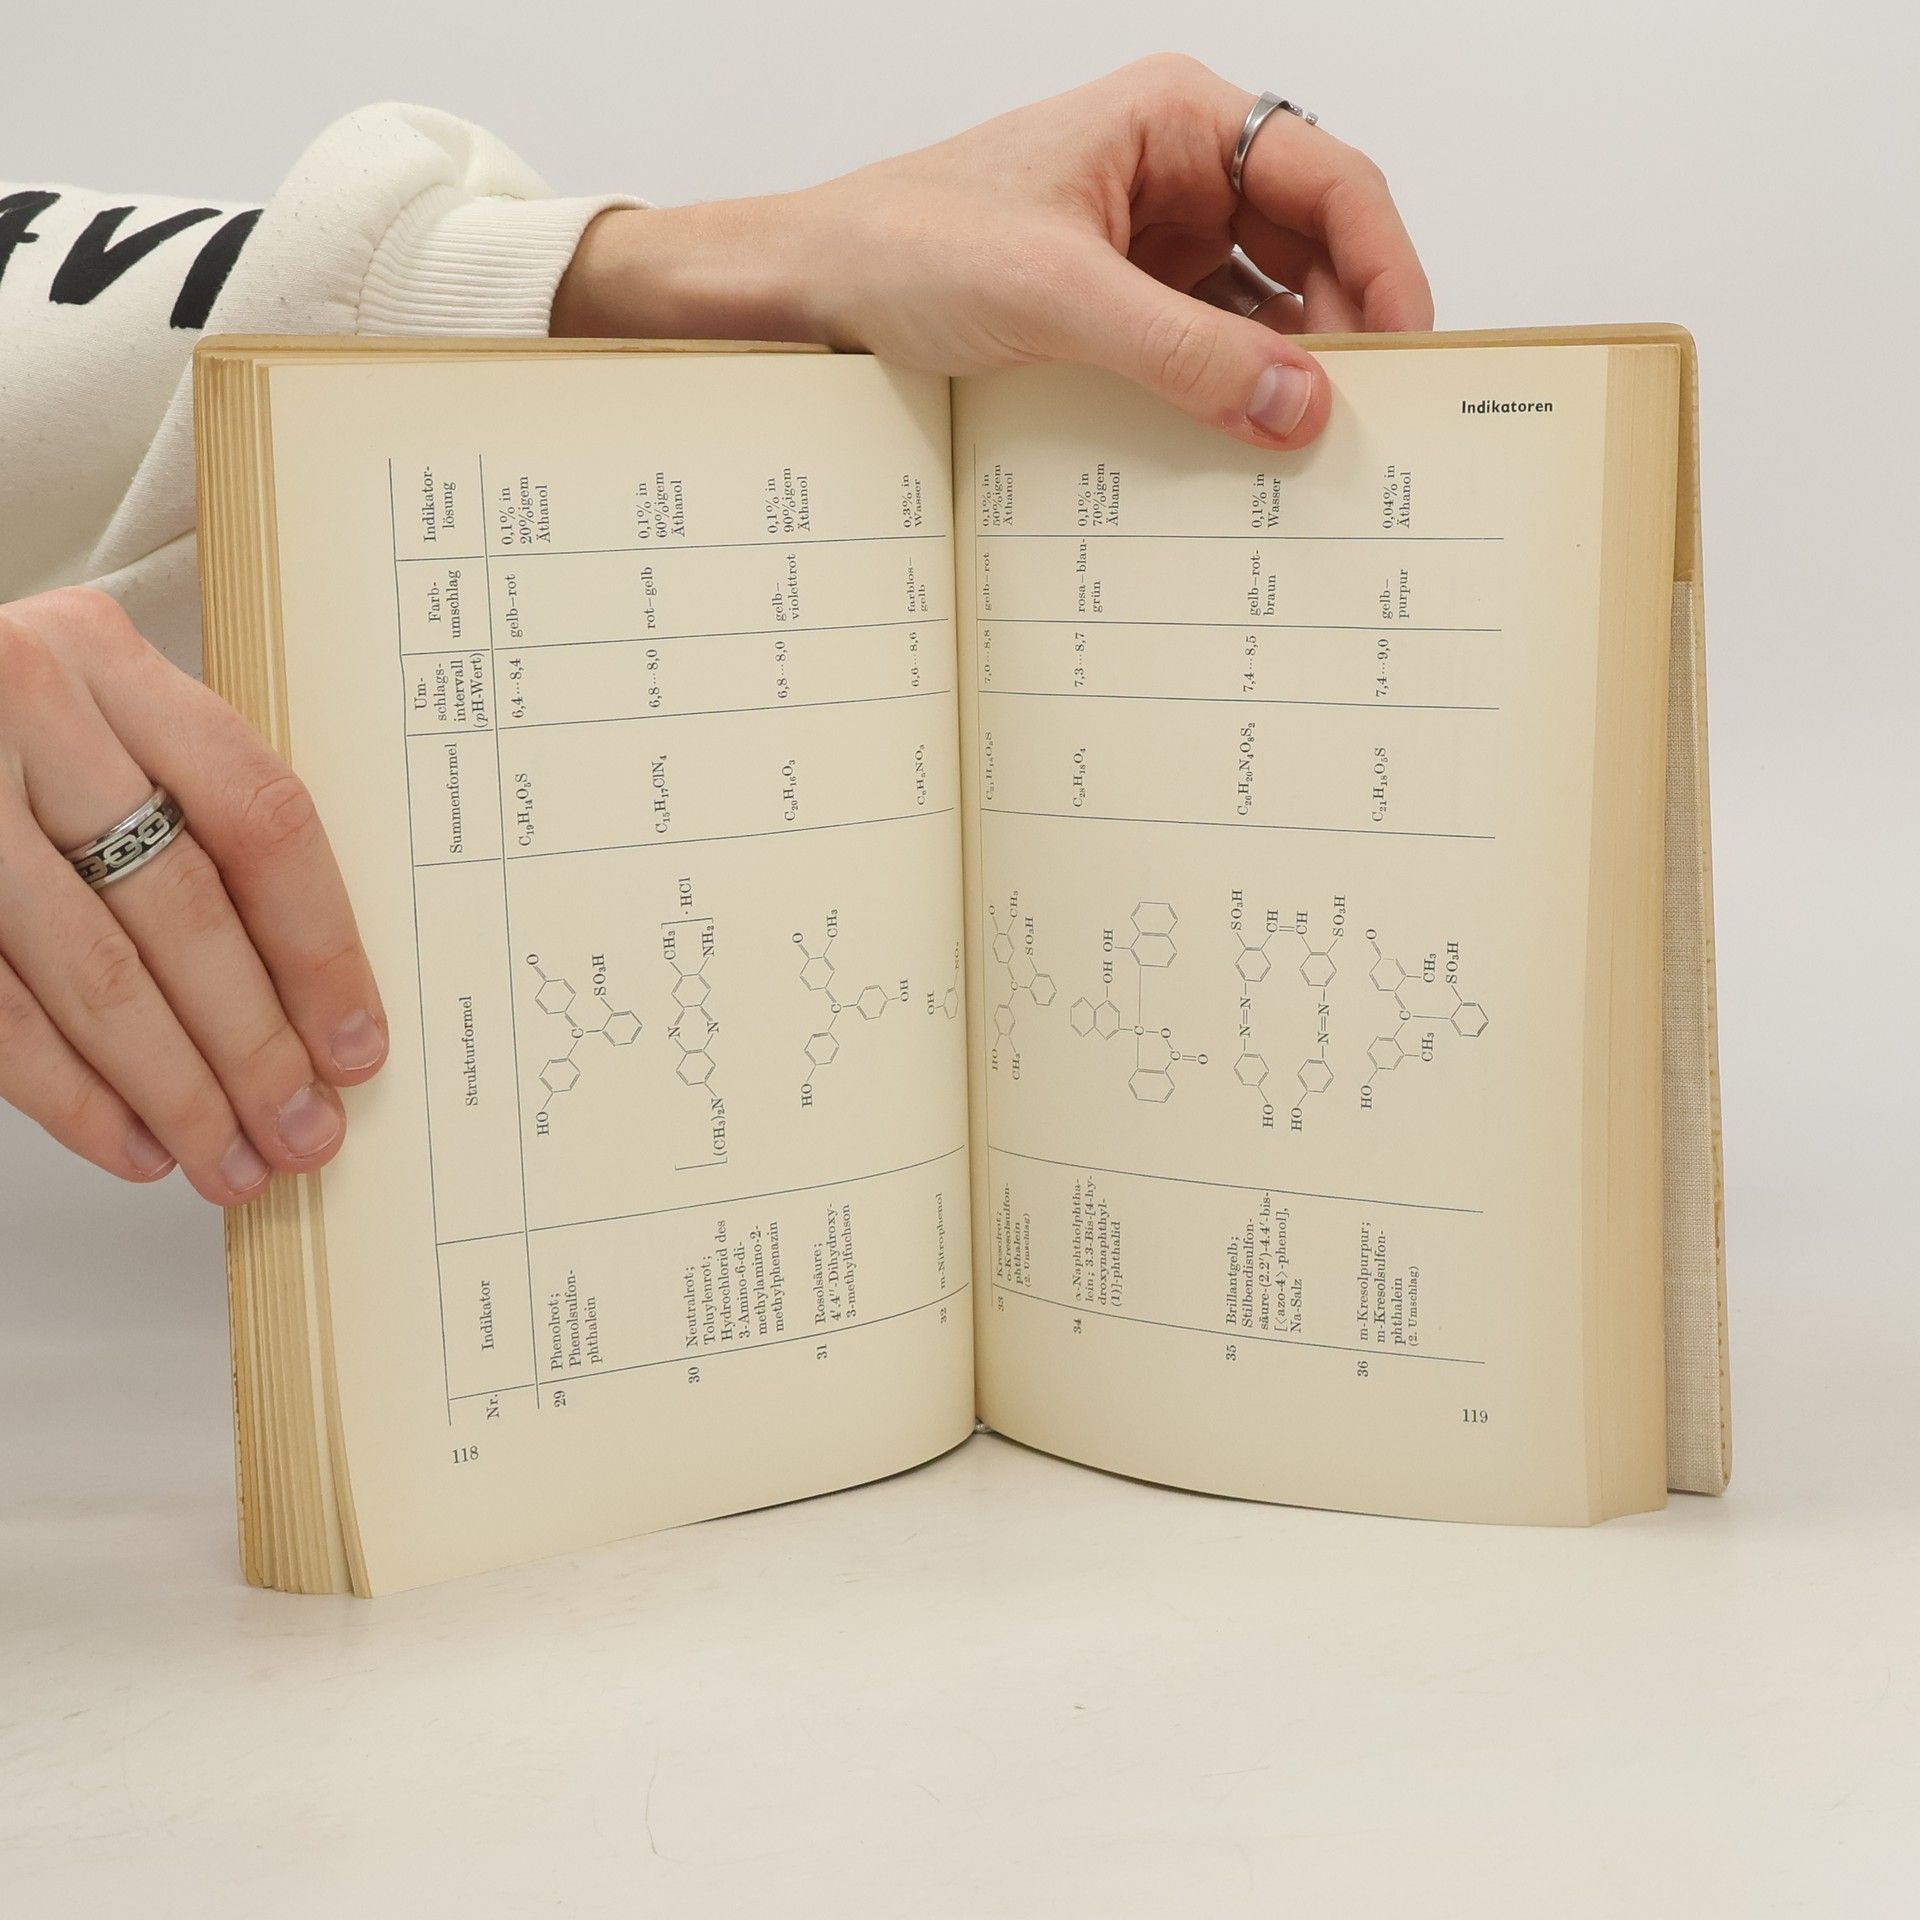 Indikatoren
Nr.
Indikator
Strukturformel
Summenformel
Um-
schlags-
intervall
(pH-Wert)
Farb-
umschlag
Indikator-
lösung
29
Phenolrot;
Phenolsulfon-
phthalein
HO
C
O
SO₃H
C₁₉H₁₄O₅S
6,4···8,4
gelb–rot
0,1% in
20%igem
Äthanol
30
Neutralrot;
Toluylenrot;
Hydrochlorid des
3-Amino-6-di-
methylamino-2-
methylphenazin
(CH₃)₂N
N
N
CH₃
NH₂
· HCl
C₁₅H₁₇ClN₄
6,8···8,0
rot–gelb
0,1% in
60%igem
Äthanol
31
Rosolsäure;
4′.4″-Dihydroxy-
3-methylfuchson
HO
C
O
CH₃
OH
C₂₀H₁₆O₃
6,8···8,0
gelb–
violettrot
0,1% in
90%igem
Äthanol
32
m-Nitrophenol
OH
NO₂
C₆H₅NO₃
6,6···8,6
farblos–
gelb
0,3% in
Wasser
118
33
Kresolrot;
o-Kresolsulfon-
phthalein
(2. Umschlag)
HO
CH₃
C
O
CH₃
SO₃H
C₂₁H₁₈O₅S
7,0···8,8
gelb–rot
0,1% in
50%igem
Äthanol
34
α-Naphtholphtha-
lein; 3.3-Bis-[4-hy-
droxynaphthyl-
(1)]-phthalid
OH OH
C
O
C
O
C₂₈H₁₈O₄
7,3···8,7
rosa–blau-
grün
0,1% in
70%igem
Äthanol
35
Brillantgelb;
Stilbendisulfon-
säure-(2.2′)-4.4′-bis-
[⟨azo-4⟩-phenol],
Na-Salz
HO
N=N
SO₃H
CH
CH
HO
N=N
SO₃H
C₂₆H₂₀N₄O₈S₂
7,4···8,5
gelb–rot-
braun
0,1% in
Wasser
36
m-Kresolpurpur;
m-Kresolsulfon-
phthalein
(2. Umschlag)
HO
C
O
CH₃
CH₃
SO₃H
C₂₁H₁₈O₅S
7,4···9,0
gelb–
purpur
0,04% in
Äthanol
119